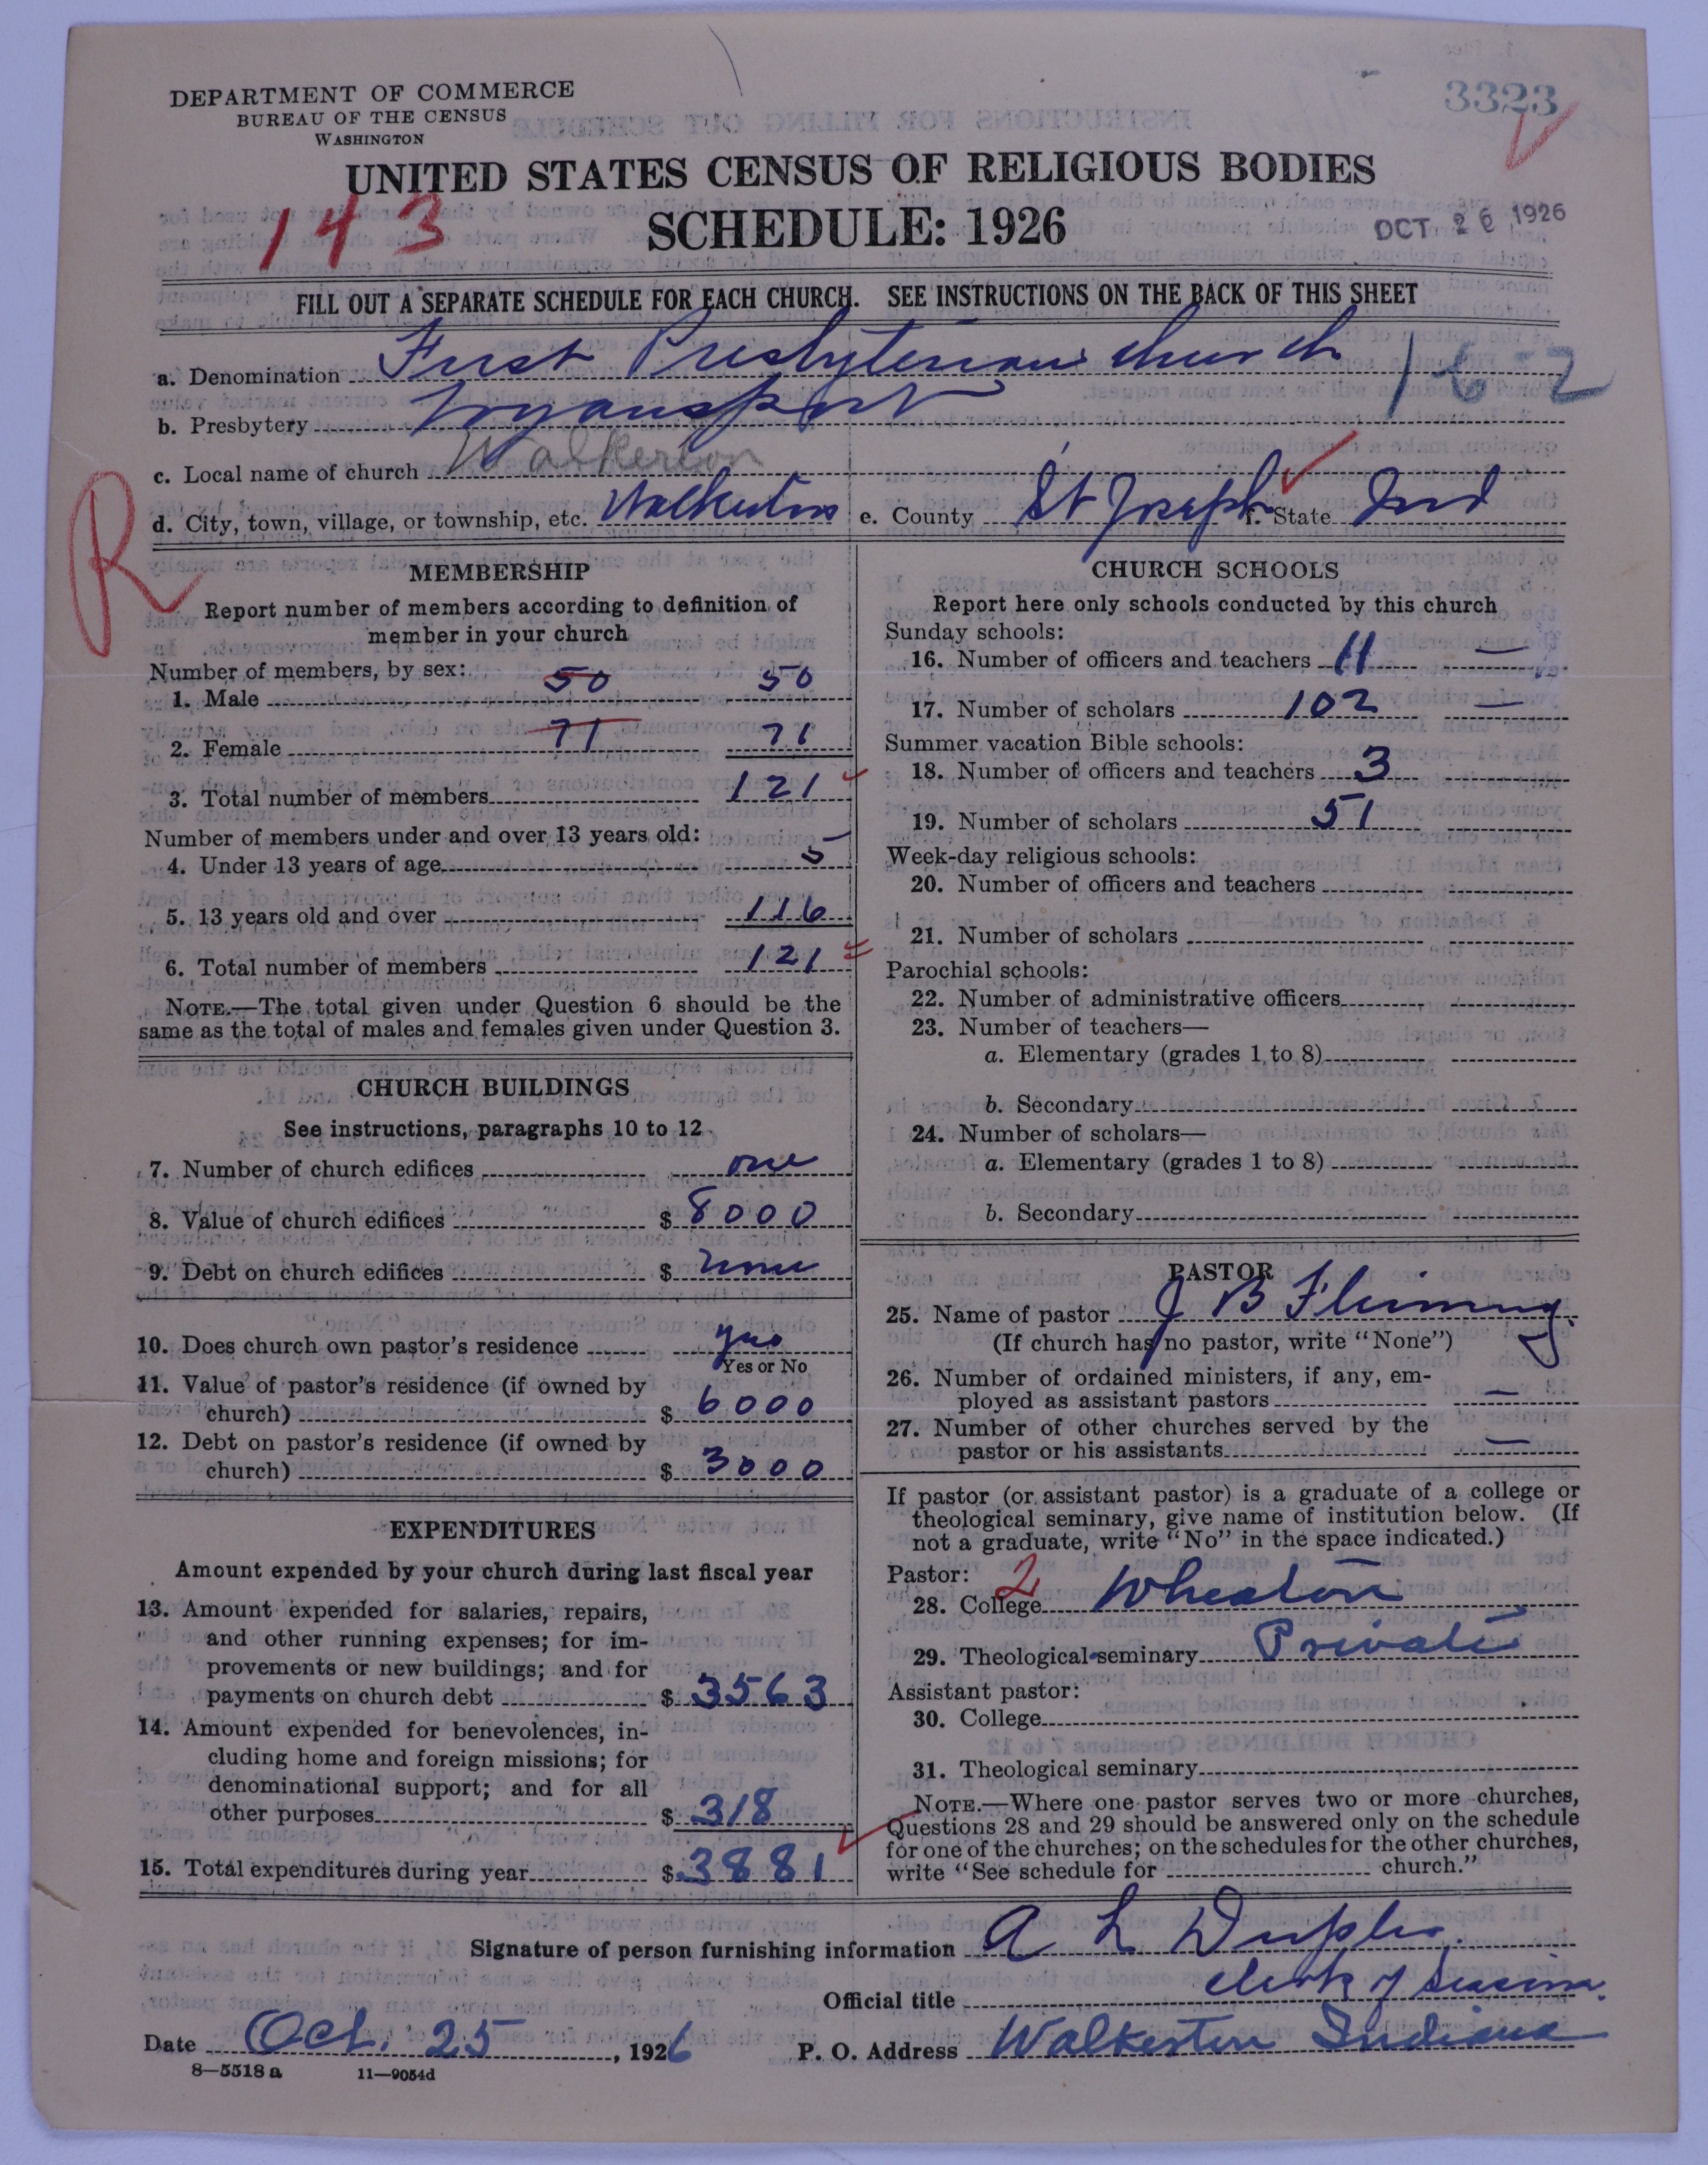 3323
DEPARTMENT OF COMMERCE
BUREAU OF THE CENSUS
WASHINGTON
UNITED STATES CENSUS OF RELIGIOUS BODIES
143
SCHEDULE: 1926
OCT 26 1926
FILL OUT A SEPARATE SCHEDULE FOR EACH CHURCH. SEE INSTRUCTIONS ON THE BACK OF THIS SHEET
a. Denomination First Presbyterian church
16-2
b. Presbytery Logansport
c. Local name of church Walkerton
d. City, town, village, or township, etc. Walkerton e. County St Joseph f. State Ind
R
MEMBERSHIP
Report number of members according to definition of
member in your church
Number of members, by sex:
1. Male 50 50
2. Female 71 71
3. Total number of members 121
Number of members under and over 13 years old:
4. Under 13 years of age 5
5. 13 years old and over 116
6. Total number of members 121
NOTE.—The total given under Question 6 should be the
same as the total of males and females given under Question 3.
CHURCH BUILDINGS
See instructions, paragraphs 10 to 12
7. Number of church edifices one
8. Value of church edifices $ 8000
9. Debt on church edifices $ none
10. Does church own pastor's residence yes
Yes or No
11. Value of pastor's residence (if owned by
church) $ 6000
12. Debt on pastor's residence (if owned by
church) $ 3000
EXPENDITURES
Amount expended by your church during last fiscal year
13. Amount expended for salaries, repairs,
and other running expenses; for im-
provements or new buildings; and for
payments on church debt $ 3563
14. Amount expended for benevolences, in-
cluding home and foreign missions; for
denominational support; and for all
other purposes $ 318
15. Total expenditures during year $ 3881
CHURCH SCHOOLS
Report here only schools conducted by this church
Sunday schools:
16. Number of officers and teachers 11 —
17. Number of scholars 102 —
Summer vacation Bible schools:
18. Number of officers and teachers 3
19. Number of scholars 51
Week-day religious schools:
20. Number of officers and teachers
21. Number of scholars
Parochial schools:
22. Number of administrative officers
23. Number of teachers—
a. Elementary (grades 1 to 8)
b. Secondary
24. Number of scholars—
a. Elementary (grades 1 to 8)
b. Secondary
PASTOR
25. Name of pastor J B Fleming
(If church has no pastor, write "None")
26. Number of ordained ministers, if any, em-
ployed as assistant pastors —
27. Number of other churches served by the
pastor or his assistants —
If pastor (or assistant pastor) is a graduate of a college or
theological seminary, give name of institution below. (If
not a graduate, write "No" in the space indicated.)
Pastor: 2
28. College Wheaton
29. Theological seminary Private
Assistant pastor:
30. College
31. Theological seminary
NOTE.—Where one pastor serves two or more churches,
Questions 28 and 29 should be answered only on the schedule
for one of the churches; on the schedules for the other churches,
write "See schedule for church."
Signature of person furnishing information A L
Official title clerk of session.
Date Oct. 25, 1926 P. O. Address Walkerton Indiana
8—5518 a 11—9054d